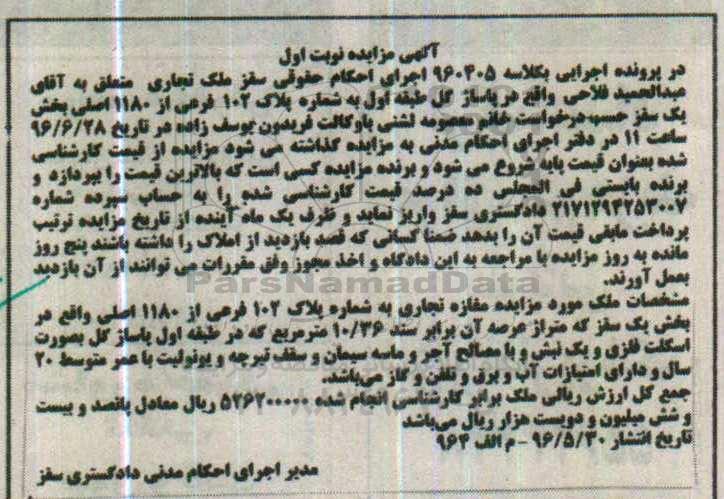 آگهی مزایده نوبت اول
در پرونده اجرایی بکلاسه ۹۶۰۴۰۵ اجرای احکام حقوقی سقز ملک تجاری متعلق به آقای
عبدالحمید فلاحی واقع در پاساژ گل طبقه اول به شماره پلاک ۱۰۲ فرعی از ۱۱۸۰ اصلی بخش
یک سقز حسب درخواست خانم معصومه لشنی باوکالت فریدون یوسف زاده در تاریخ ۹۶/۶/۲۸
ساعت ۱۱ در دفتر اجرای احکام مدنی به مزایده گذاشته می شود مزایده از قیمت کارشناسی
شده بعنوان قیمت پایه شروع می شود و برنده مزایده کسی است که بالاترین قیمت را بپردازد و
برنده بایستی فی المجلس ده درصد قیمت کارشناسی شده را به حساب سپرده شماره
۲۱۷۱۲۹۴۲۵۳۰۰۷ دادگستری سقز واریز نماید و ظرف یک ماه آینده از تاریخ مزایده ترتیب
پرداخت مابقی قیمت آن را بدهد ضمنا کسانی که قصد بازدید از املاک را داشته باشند پنج روز
مانده به روز مزایده با مراجعه به این دادگاه و اخذ مجوز وفق مقررات می توانند از آن بازدید
بعمل آورند.
ParsNamadData
مشخصات ملک مورد مزایده مغازه تجاری به شماره پلاک ۱۰۲ فرعی از ۱۱۸۰ اصلی واقع در
بخش یک سقز که متراژ عرصه آن برابر سند ۱۰/۳۶ مترمربع که در طبقه اول پاساژ گل بصورت
اسکلت فلزی و یک نبش و با مصالح آجر و ماسه سیمان و سقف تیرچه و یونولیت با عمر متوسط ۲۰
سال و دارای امتیازات آب و برق و تلفن و گاز می‌باشد.
جمع کل ارزش ریالی ملک برابر کارشناسی انجام شده ۵۲۶۲۰۰۰۰۰ ریال معادل پانصد و بیست
و شش میلیون و دویست هزار ریال می‌باشد
تاریخ انتشار ۹۶/۵/۳۰ - م الف ۹۶۴
مدیر اجرای احکام مدنی دادگستری سقز